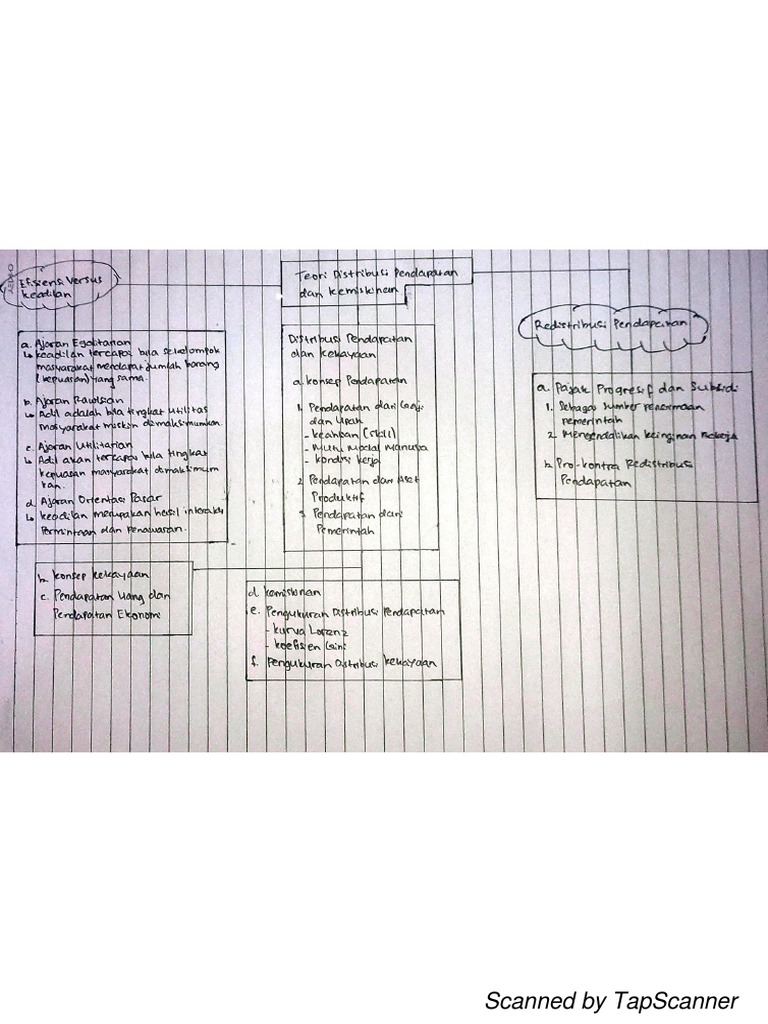 Efisiensi Versus
Keadilan
Teori Distribusi Pendapatan
dan Kemiskinan
Redistribusi Pendapatan
a. Ajaran Egalitarian
↳ keadilan tercapai bila sekelompok
masyarakat mendapat jumlah barang
(kepuasan) yang sama.
b. Ajaran Rawlsian
↳ Adil adalah bila tingkat utilitas
masyarakat miskin dimaksimumkan.
c. Ajaran Utilitarian
↳ Adil akan tercapai bila tingkat
kepuasan masyarakat dimaksimum
kan.
d. Ajaran Orientasi Pasar
↳ keadilan merupakan hasil interaksi
Permintaan dan Penawaran.
Distribusi Pendapatan
dan Kekayaan
a. konsep Pendapatan
1. Pendapatan dari Gaji
dan Upah
- keahlian (skill)
- Mutu Modal Manusia
- kondisi kerja
2. Pendapatan dari Aset
Produktif
3. Pendapatan dari
Pemerintah
a. Pajak Progresif dan Subsidi
1. Sebagai Sumber Penerimaan
pemerintah
2. Mengendalikan keinginan Bekerja
b. Pro-kontra Redistribusi
Pendapatan
b. konsep kekayaan
c. Pendapatan Uang dan
Pendapatan Ekonomi
d. kemiskinan
e. Pengukuran Distribusi Pendapatan
- kurva Lorenz
- koefisien Gini
f. Pengukuran Distribusi kekayaan
Scanned by TapScanner